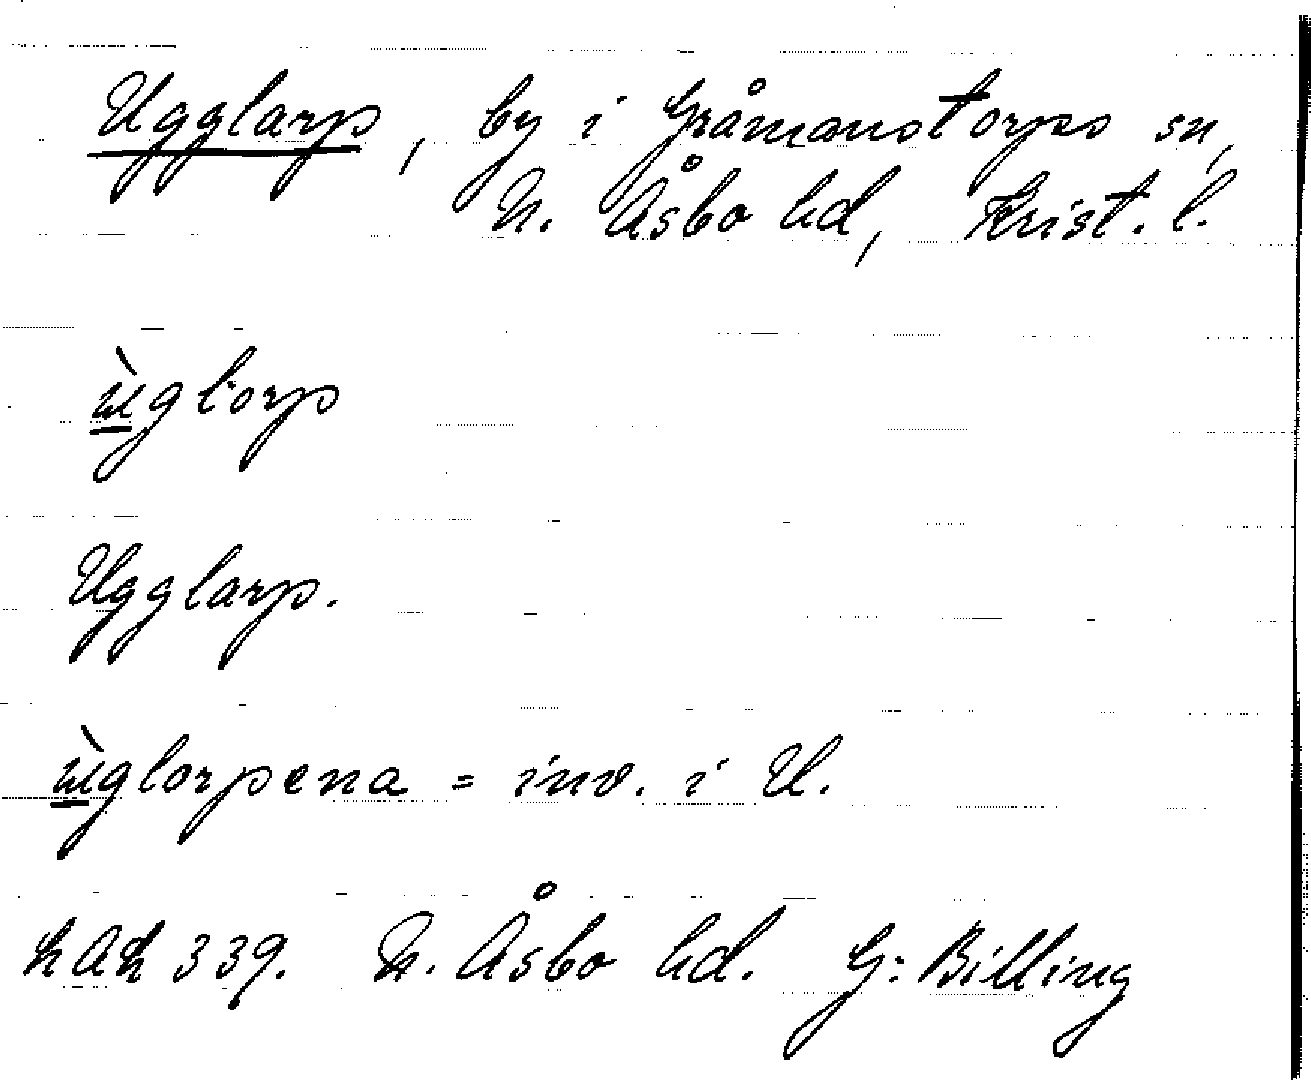 Ugglarp, by i Gråmanstorps sn,
N. Åsbo hd, Krist. l.
ùglorp
Ugglarp.
ùglorpena = inv. i U.
339. N. Åsbo hd. G: Billing